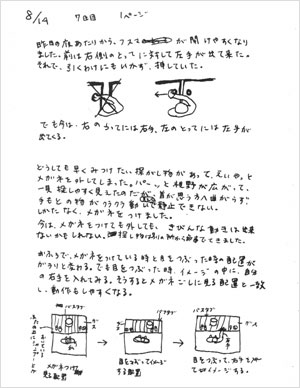 8/14 7日目 1ページ
昨日の夜あたりから、フスマ が開けやすくなり
ました。前は右側のとってに対して左手が出て来た。
それで、引くわけにもいかず、押していた。
でも今は、右のとってには右手、左のとってには左手が
出てくる。
どうしても早くみつけたい探がし物があって、えいや。と
メガネを外してしまった。パーッと視野が広がって、
一見探しやすく見えたのだが、首が思う方へ曲がらず
手もとの物がクラクラ動いて静止できない。
しかたなく、メガネをつけました。
今は、メガネをつけても外しても、きびんな動きは出来
ないかもしれない。探し物は別の所から出てきました。
おふろで、メガネをつけている時と目をつぶった時の配置が
がらりと変わる。で、目をつぶった時、イメージの中に、自分の
右手を入れてみる。そうするとメガネごしに見る配置と一致
し、動作もしやすくなる。
バスタブ バスタブ バスタブ
メガネつけ
見る配置
目をつぶってイメージ
する配置
目をつぶって、右手を
イメージする。